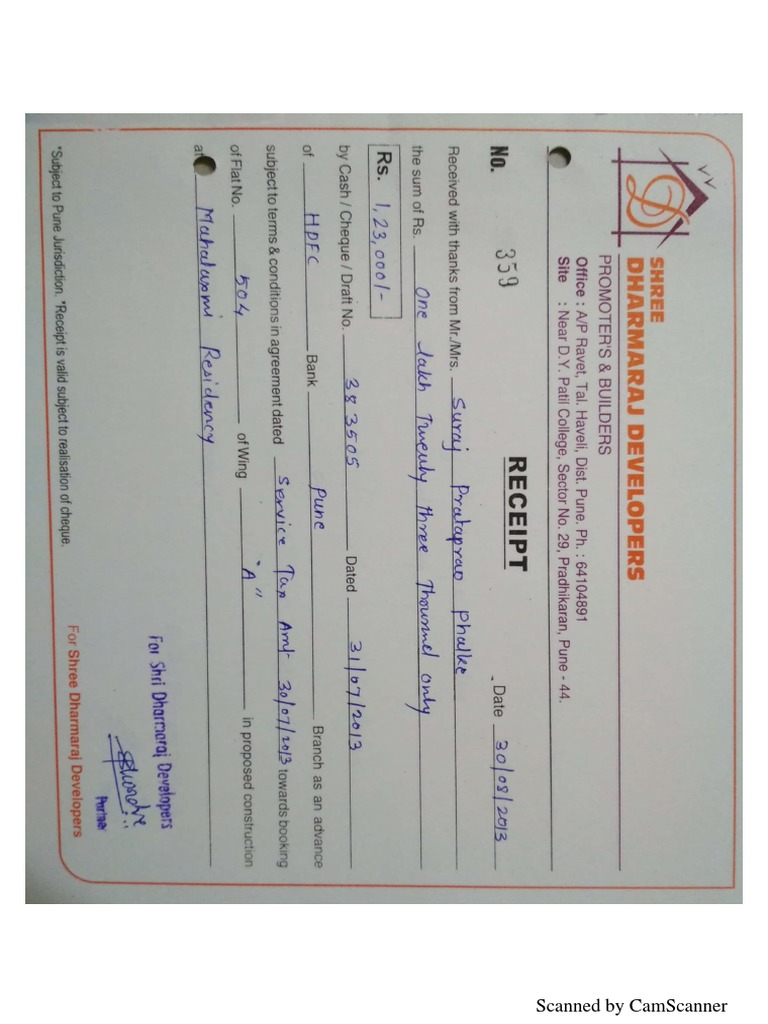 SHREE
DHARMARAJ DEVELOPERS
PROMOTER'S & BUILDERS
Office : A/P Ravet, Tal. Haveli, Dist. Pune. Ph. : 64104891
Site : Near D.Y. Patil College, Sector No. 29, Pradhikaran, Pune - 44.
RECEIPT
No. 359 Date 30/08/2013
Received with thanks from Mr./Mrs. Suraj Prataprao Phalke
the sum of Rs. One lakh Twenty three Thousand only
Rs. 1,23,000/-
by Cash / Cheque / Draft No. 383505 Dated 31/07/2013
of HDFC Bank Pune Branch as an advance
subject to terms & conditions in agreement dated Service Tax Amt 30/07/2013 towards booking
of Flat No. 504 of Wing "A" in proposed construction
at Mahalaxmi Residency
For Shri Dharmaraj Developers
Partner
For Shree Dharmaraj Developers
*Subject to Pune Jurisdiction. *Receipt is valid subject to realisation of cheque.
Scanned by CamScanner